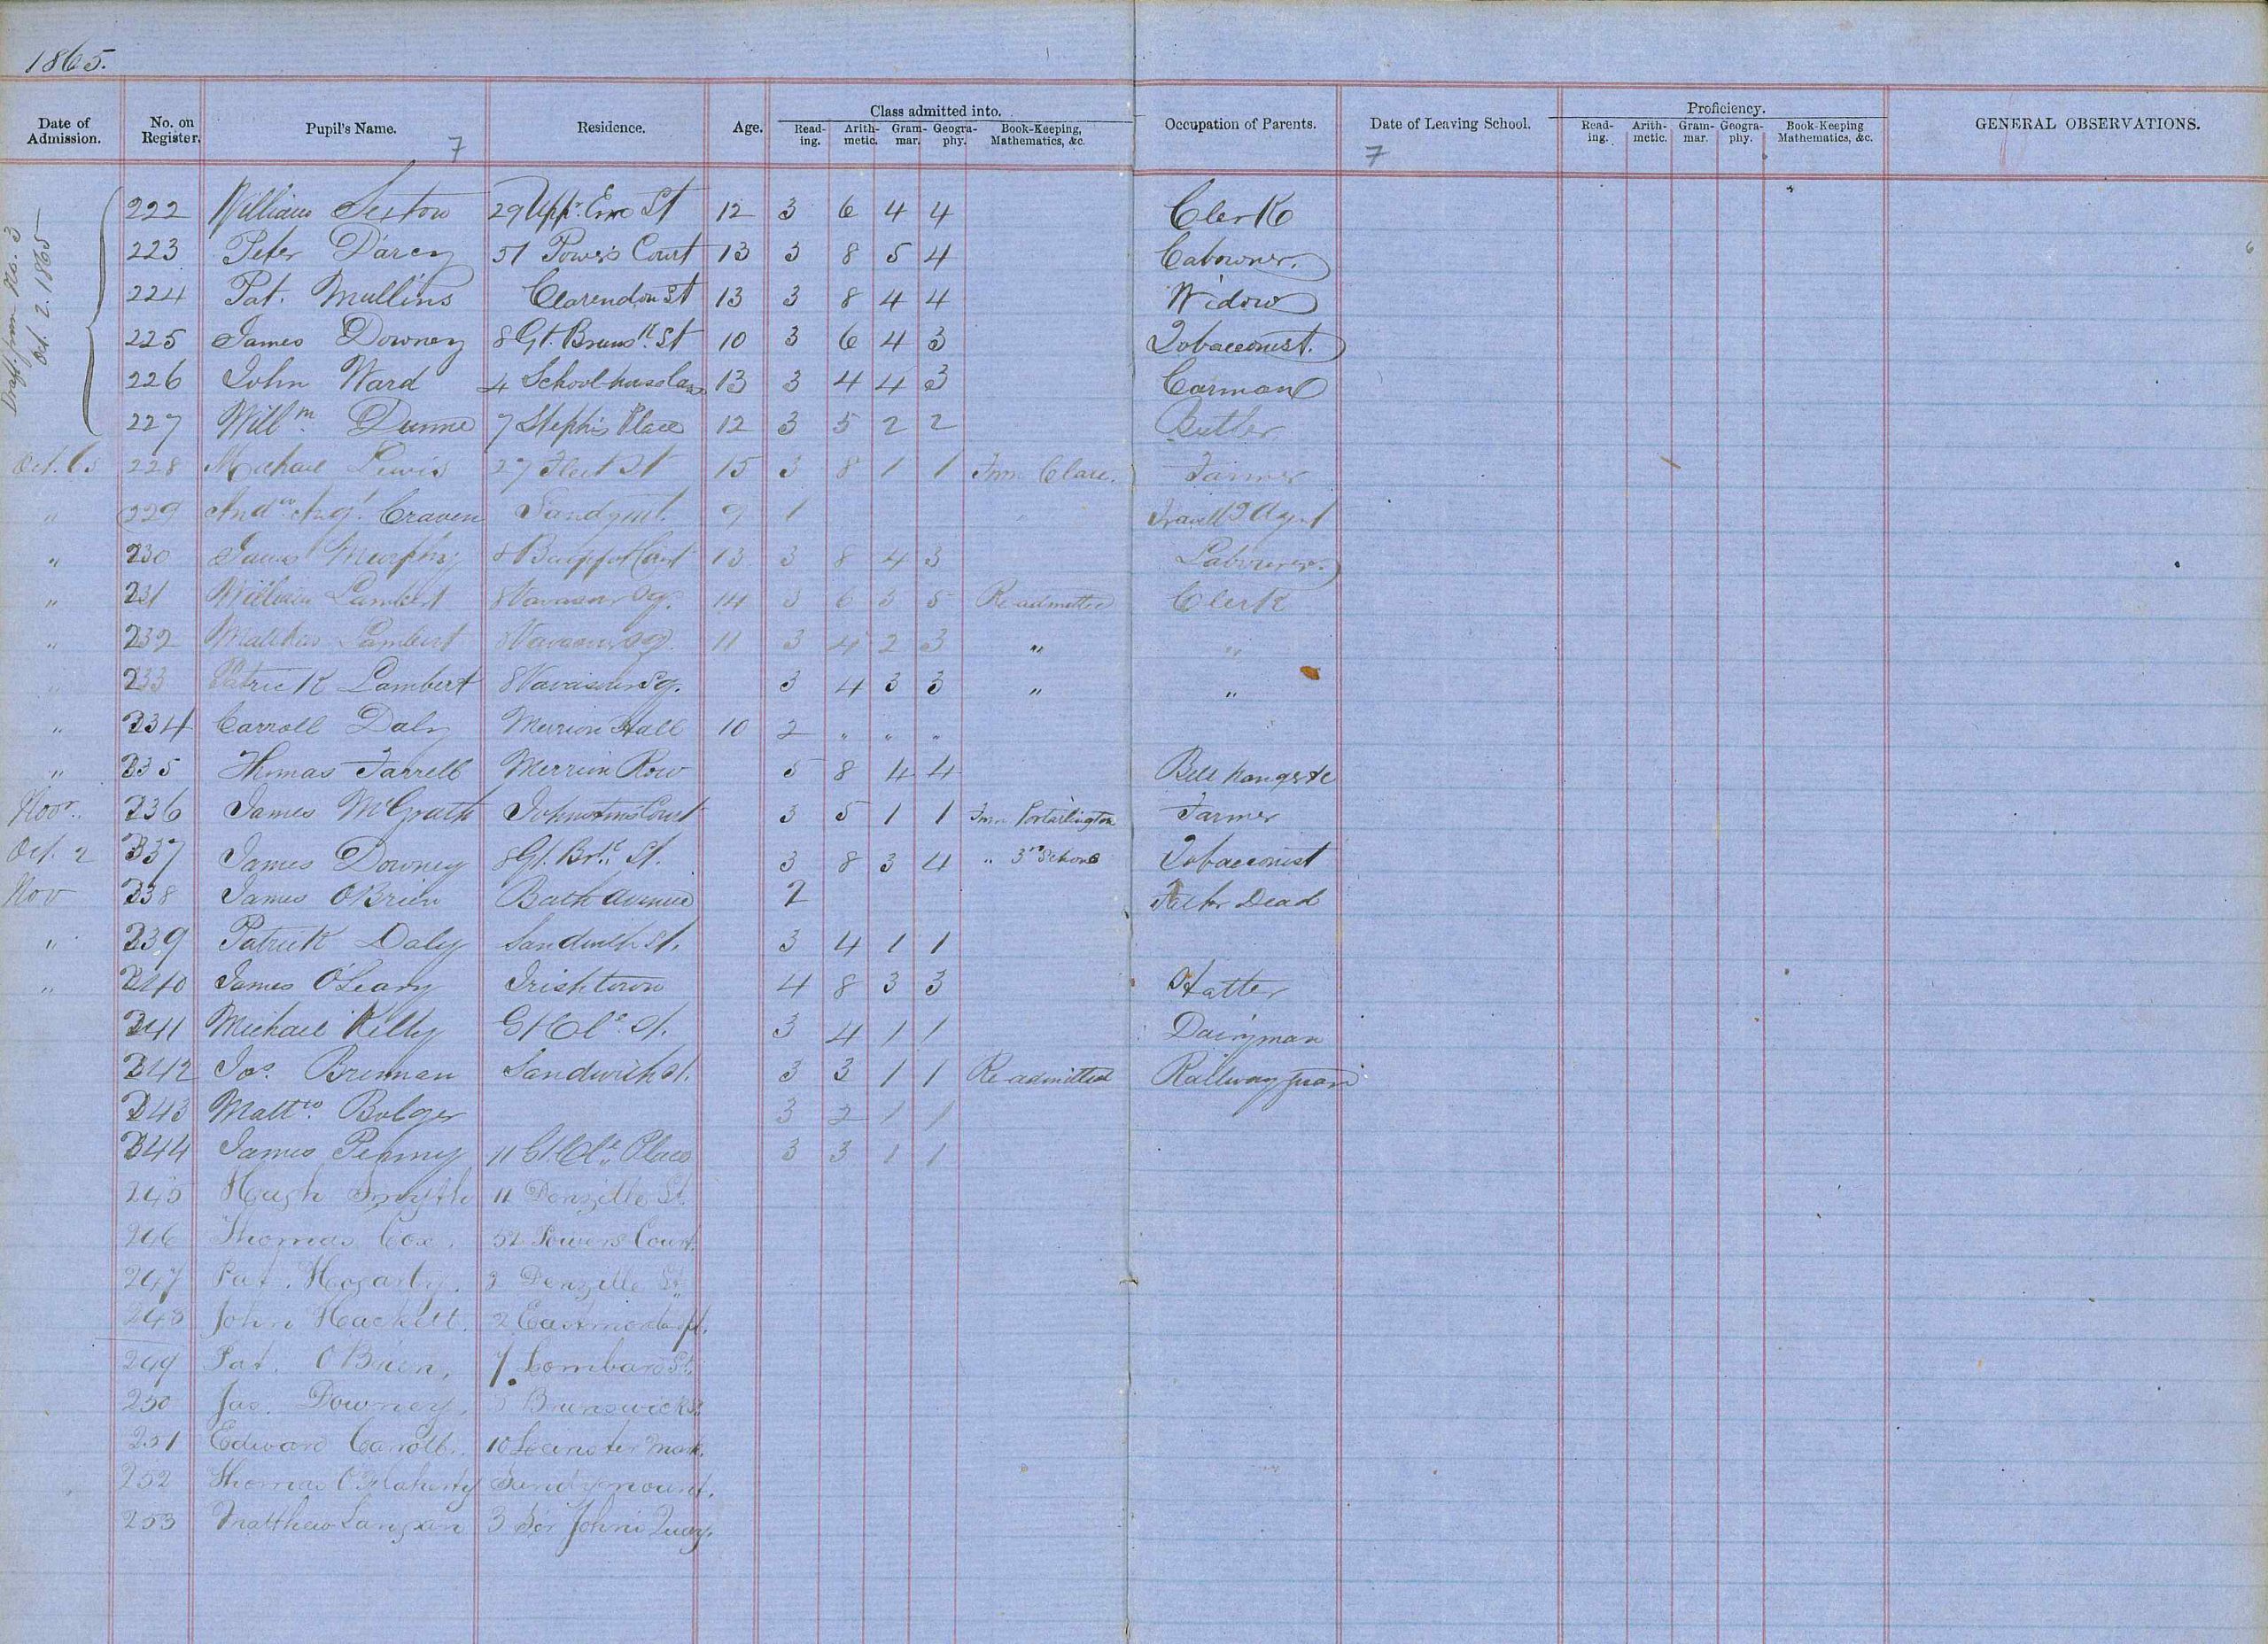 1865.
Date of Admission. No. on Register. Pupil's Name. Residence. Age. Class admitted into. Reading. Arithmetic. Grammar. Geography. Book-Keeping, Mathematics, &c. Occupation of Parents. Date of Leaving School. Proficiency. Reading. Arithmetic. Grammar. Geography. Book-Keeping Mathematics, &c. GENERAL OBSERVATIONS.
7 7
Draft from No. 3
Oct. 2. 1865
222 William Sexton 29 Uppr. Erne St 12 3 6 4 4 Clerk
223 Peter D'arcy 51 Power's Court 13 3 8 5 4 Cabowner.
224 Pat. Mullins Clarendon St 13 3 8 4 4 Widow
225 James Downey 8 Gt. Brunsk. St 10 3 6 4 3 Tobacconist.
226 John Ward 4 Schoolhouse Lane 13 3 4 4 3 Carman
227 Willm. Dunne 7 Steph's Place 12 3 5 2 2 Butler
Oct. 65 228 Michael Lewis 27 Fleet St 15 3 8 1 1 From Clare. Farmer
" 229 Andw. Aug. Craven Sandymt. 9 1 Travellg Agent
" 230 James Murphy 8 Court 13 3 8 4 3 Labourer.
" 231 William Lambert 8 Vavasour Sq. 14 3 6 3 5 Readmitted Clerk
" 232 Matthew Lambert 8 Vavasour Sq. 11 3 4 2 3 " "
" 233 Patrick Lambert 8 Vavasour Sq. 3 4 3 3 " "
" 234 Carroll Daly Merrion Hall 10 2 " " "
" 235 Thomas Farrell Merrion Row 5 8 4 4 Bell hanger &c
Novr. 236 James McGrath Johnston's Court 3 5 1 1 From Portarlington Farmer
Oct. 2 237 James Downey 8 Gt. St. 3 8 3 4 " 3rd School Tobacconist
Nov 238 James O'Brien Bath Avenue 2 Father Dead
" 239 Patrick Daly Sandwith St. 3 4 1 1
" 240 James O'Leary Irishtown 4 8 3 3 Hatter
241 Michael Kelly St. 3 4 1 1 Dairyman
242 Jos. Brennan Sandwich St. 3 3 1 1 Readmitted Railway
243 Mattw. Bolger 3 2 1 1
244 James Penny 11 Place 3 3 1 1
245 Hugh Smyth 11 Denzille St.
246 Thomas Cox. 52 Powers Court.
247 Pat. Hogarty. 3 Denzille St.
248 John Hackett. 2 Eastmoreland pl.
249 Pat. O'Brien, 7 Lombard St.
250 Jas. Downey. 5 Brunswick St.
251 Edward Carroll. 10 Leinster Mark.
252 Thomas O'Flaherty Sandymount.
253 Matthew Langan 3 Sir John's Quay.